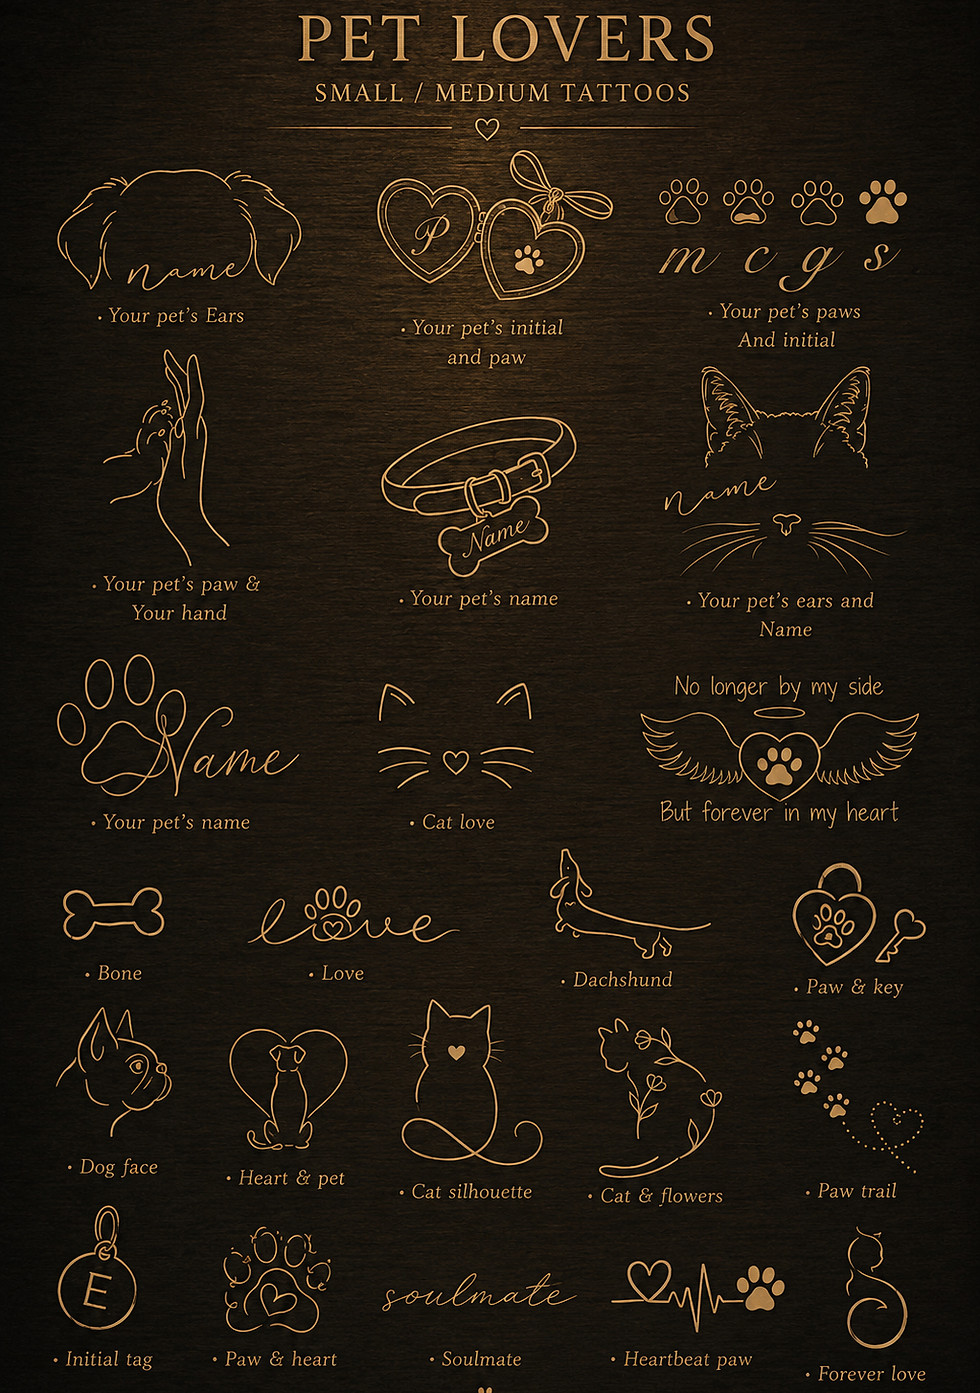 PET LOVERS
SMALL / MEDIUM TATTOOS
name
• Your pet's Ears
P
• Your pet's initial
and paw
m c g s
• Your pet's paws
And initial
• Your pet's paw &
Your hand
Name
• Your pet's name
name
• Your pet's ears and
Name
Name
• Your pet's name
• Cat love
No longer by my side
But forever in my heart
• Bone
love
• Love
• Dachshund
• Paw & key
• Dog face
• Heart & pet
• Cat silhouette
• Cat & flowers
• Paw trail
E
• Initial tag
• Paw & heart
soulmate
• Soulmate
• Heartbeat paw
• Forever love